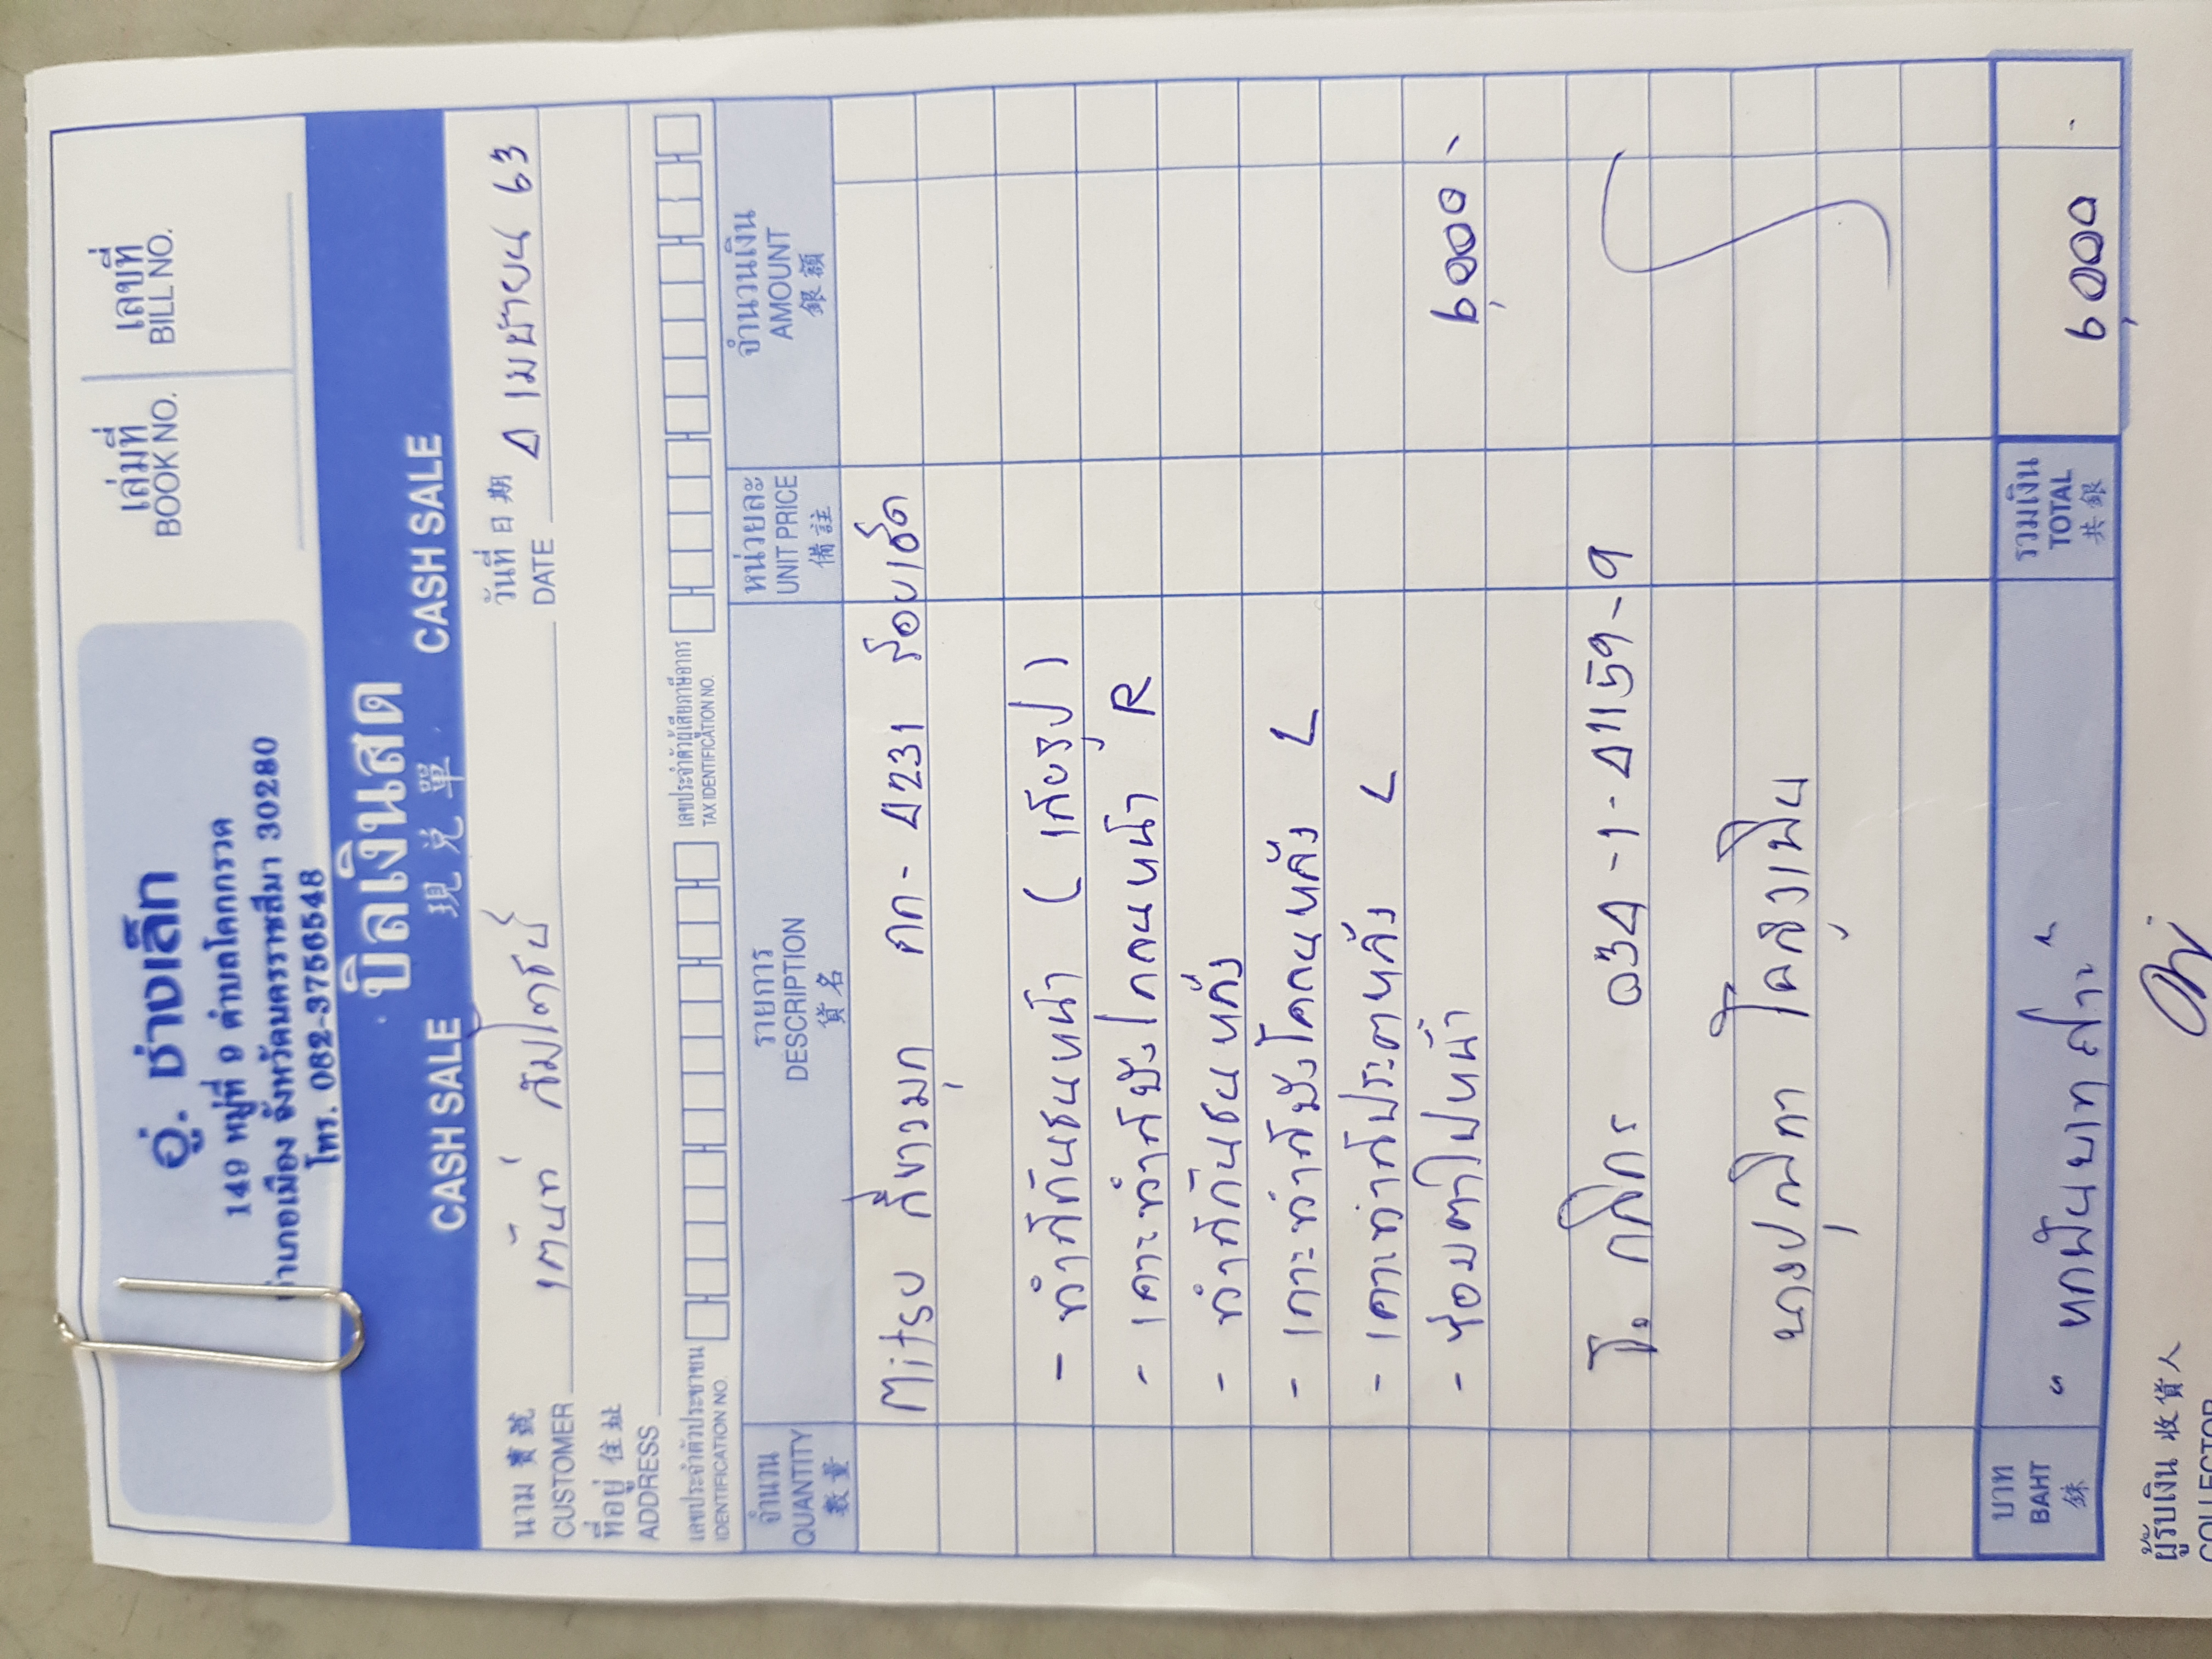 อู่. ช่างเล็ก
149 หมู่ที่ 9 ตำบลโคกกรวด
อำเภอเมือง จังหวัดนครราชสีมา 30280
โทร. 082-3756548
เล่มที่ เลขที่
BOOK NO. BILL NO.
บิลเงินสด
CASH SALE 現兌單 CASH SALE
นาม 寶號 วันที่ 日期
CUSTOMER เต๊นท์ DATE 4 เมษายน 63
ที่อยู่ 住址
ADDRESS
เลขประจำตัวประชาชน เลขประจำตัวผู้เสียภาษีอากร
IDENTIFICATION NO. TAX IDENTIFICATION NO.
จำนวน รายการ หน่วยละ จำนวนเงิน
QUANTITY DESCRIPTION UNIT PRICE AMOUNT
數量 貨名 備註 銀額
Mitsu สีขาวมุก กก-4231 ร้อยเอ็ด
- ทำสีกันชนหน้า (เกียรูป)
- เคาะทำสีบังโคลนหน้า R
- ทำสีกันชนหลัง
- เคาะทำสีบังโคลนหลัง L
- เคาะทำสีประตูหลัง L
- ซ่อมตาไฟหน้า 6,000 -
ธ. กสิกร 034-1-41159-9
นางปุณิกา
บาท รวมเงิน
BAHT " หกพันบาทถ้วน " TOTAL 6,000 -
銖 共銀
ผู้รับเงิน 收貨人
COLLECTOR